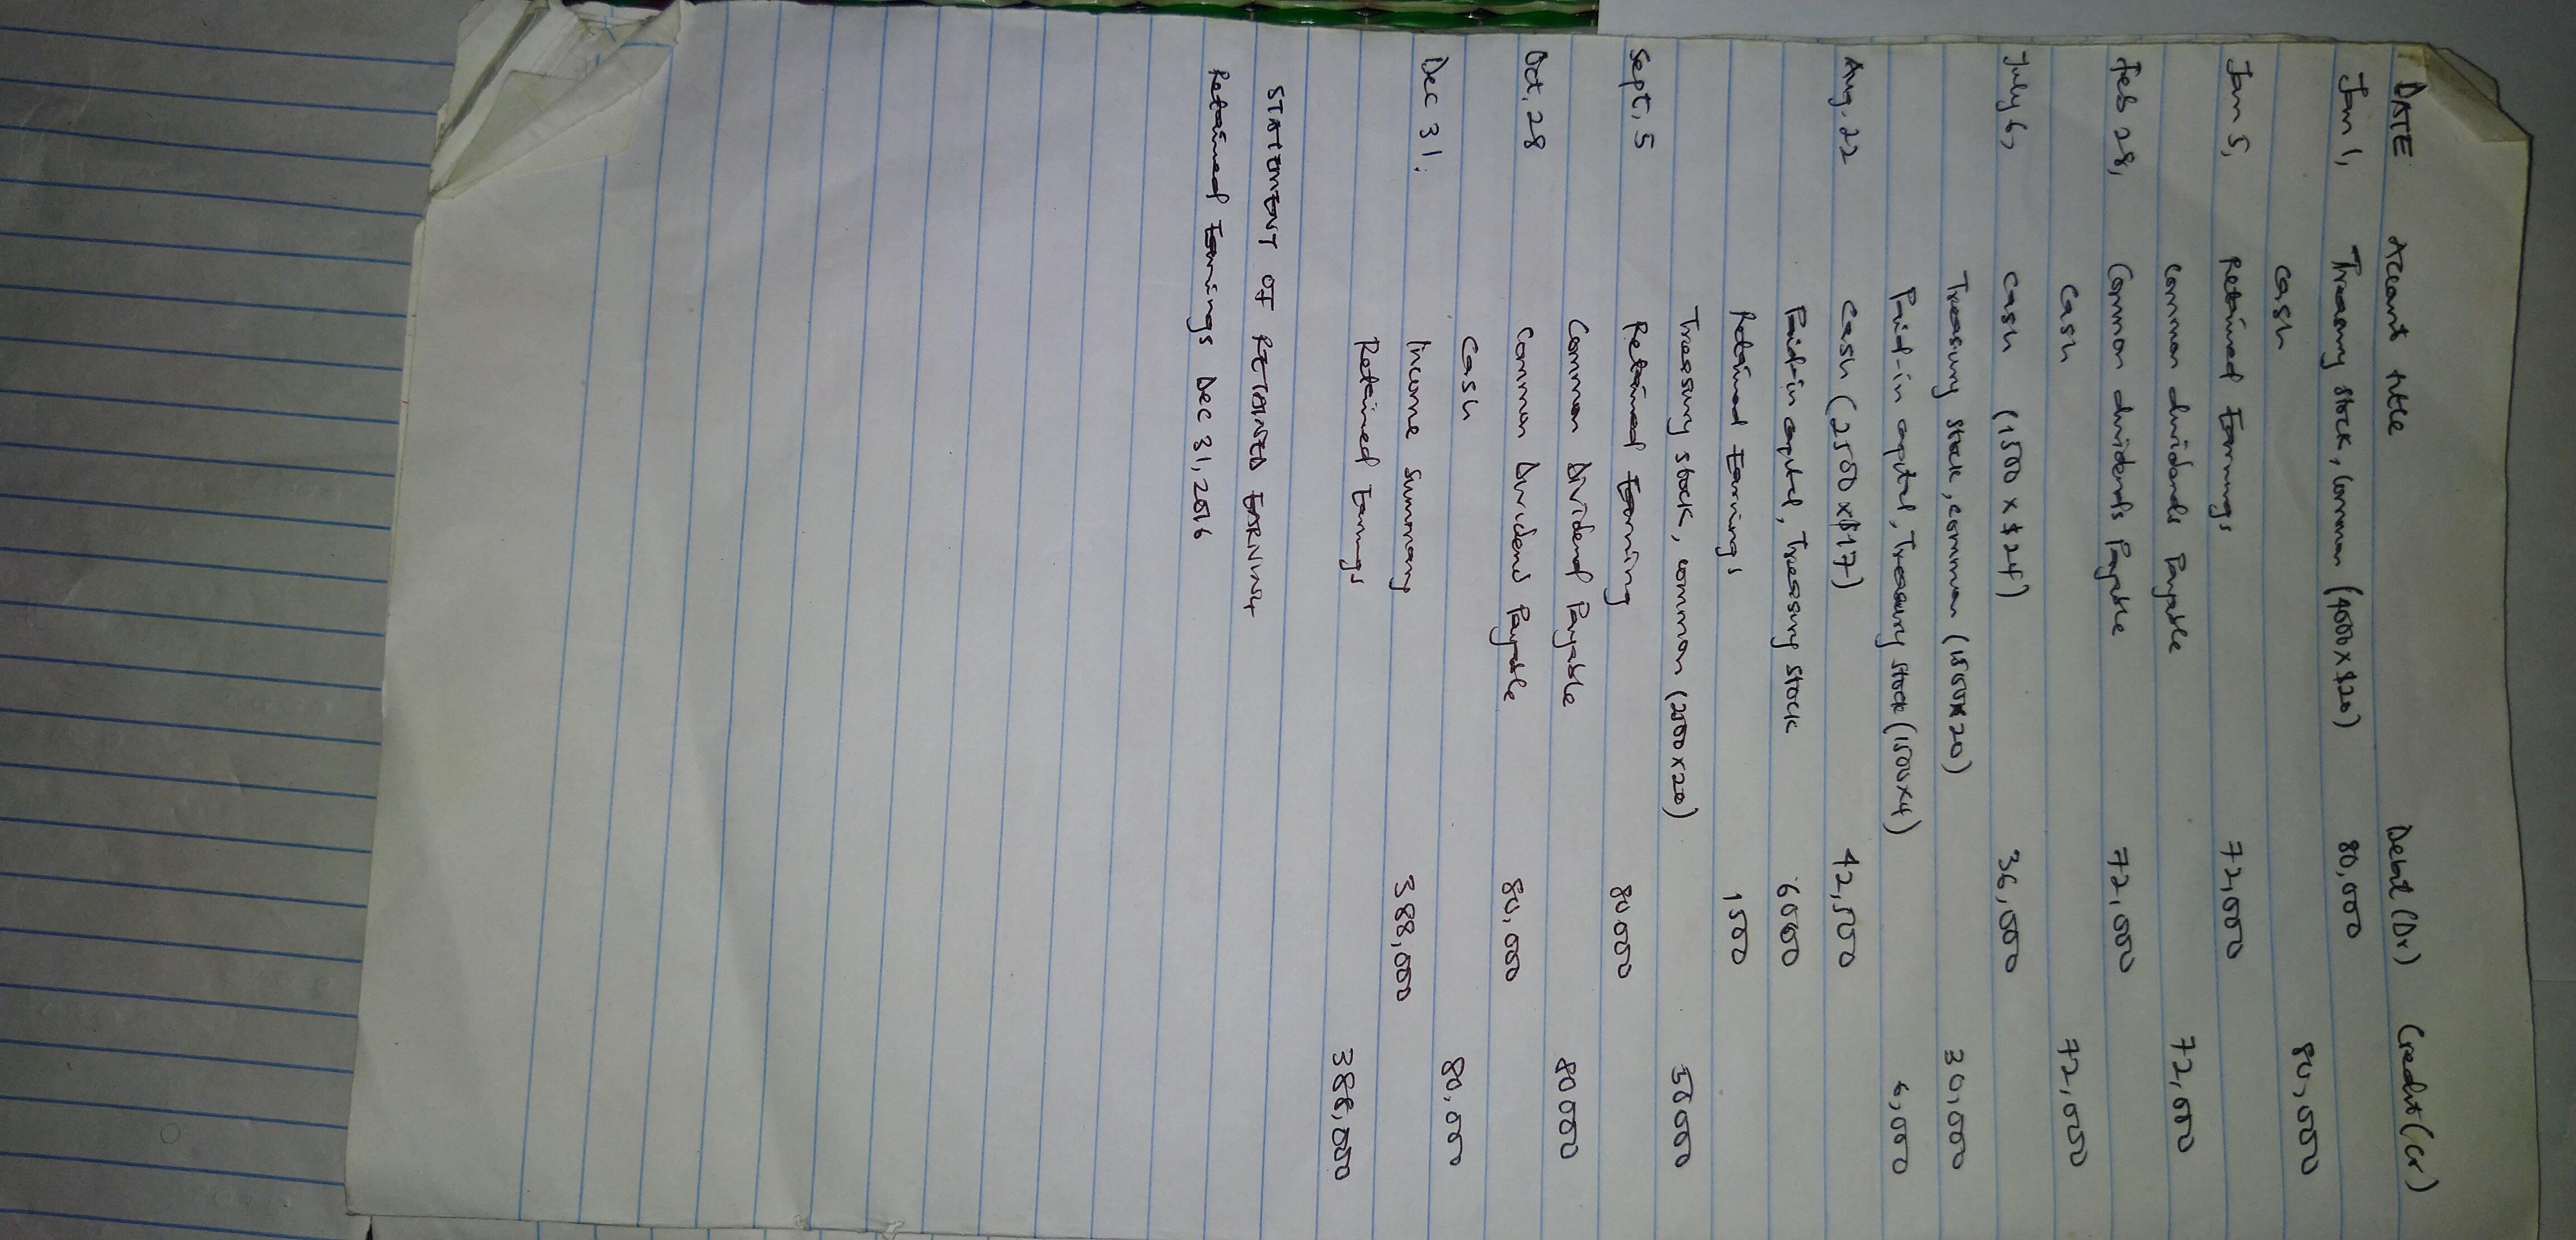 DATE Account title Debit (Dr) Credit (Cr)
Jan 1, Treasury stock, Common (4000 x $20) 80,000
Cash 80,000
Jan 5, Retained Earnings 72,000
Common dividends Payable 72,000
Feb 28, Common dividends Payable 72,000
Cash 72,000
July 6, Cash (1500 x $24) 36,000
Treasury stock, common (1500 x 20) 30,000
Paid-in capital, Treasury stock (1500 x 4) 6,000
Aug. 22 Cash (2500 x $17) 42,500
Paid-in capital, Treasury stock 6000
Retained Earnings 1500
Treasury stock, common (2500 x 20) 50000
Sept, 5 Retained Earning 80000
Common Dividend Payable 80000
Oct, 28 Common Dividend Payable 80,000
Cash 80,000
Dec 31. Income Summary 388,000
Retained Earnings 388,000
STATEMENT OF RETAINED EARNING
Retained Earnings Dec 31, 2016